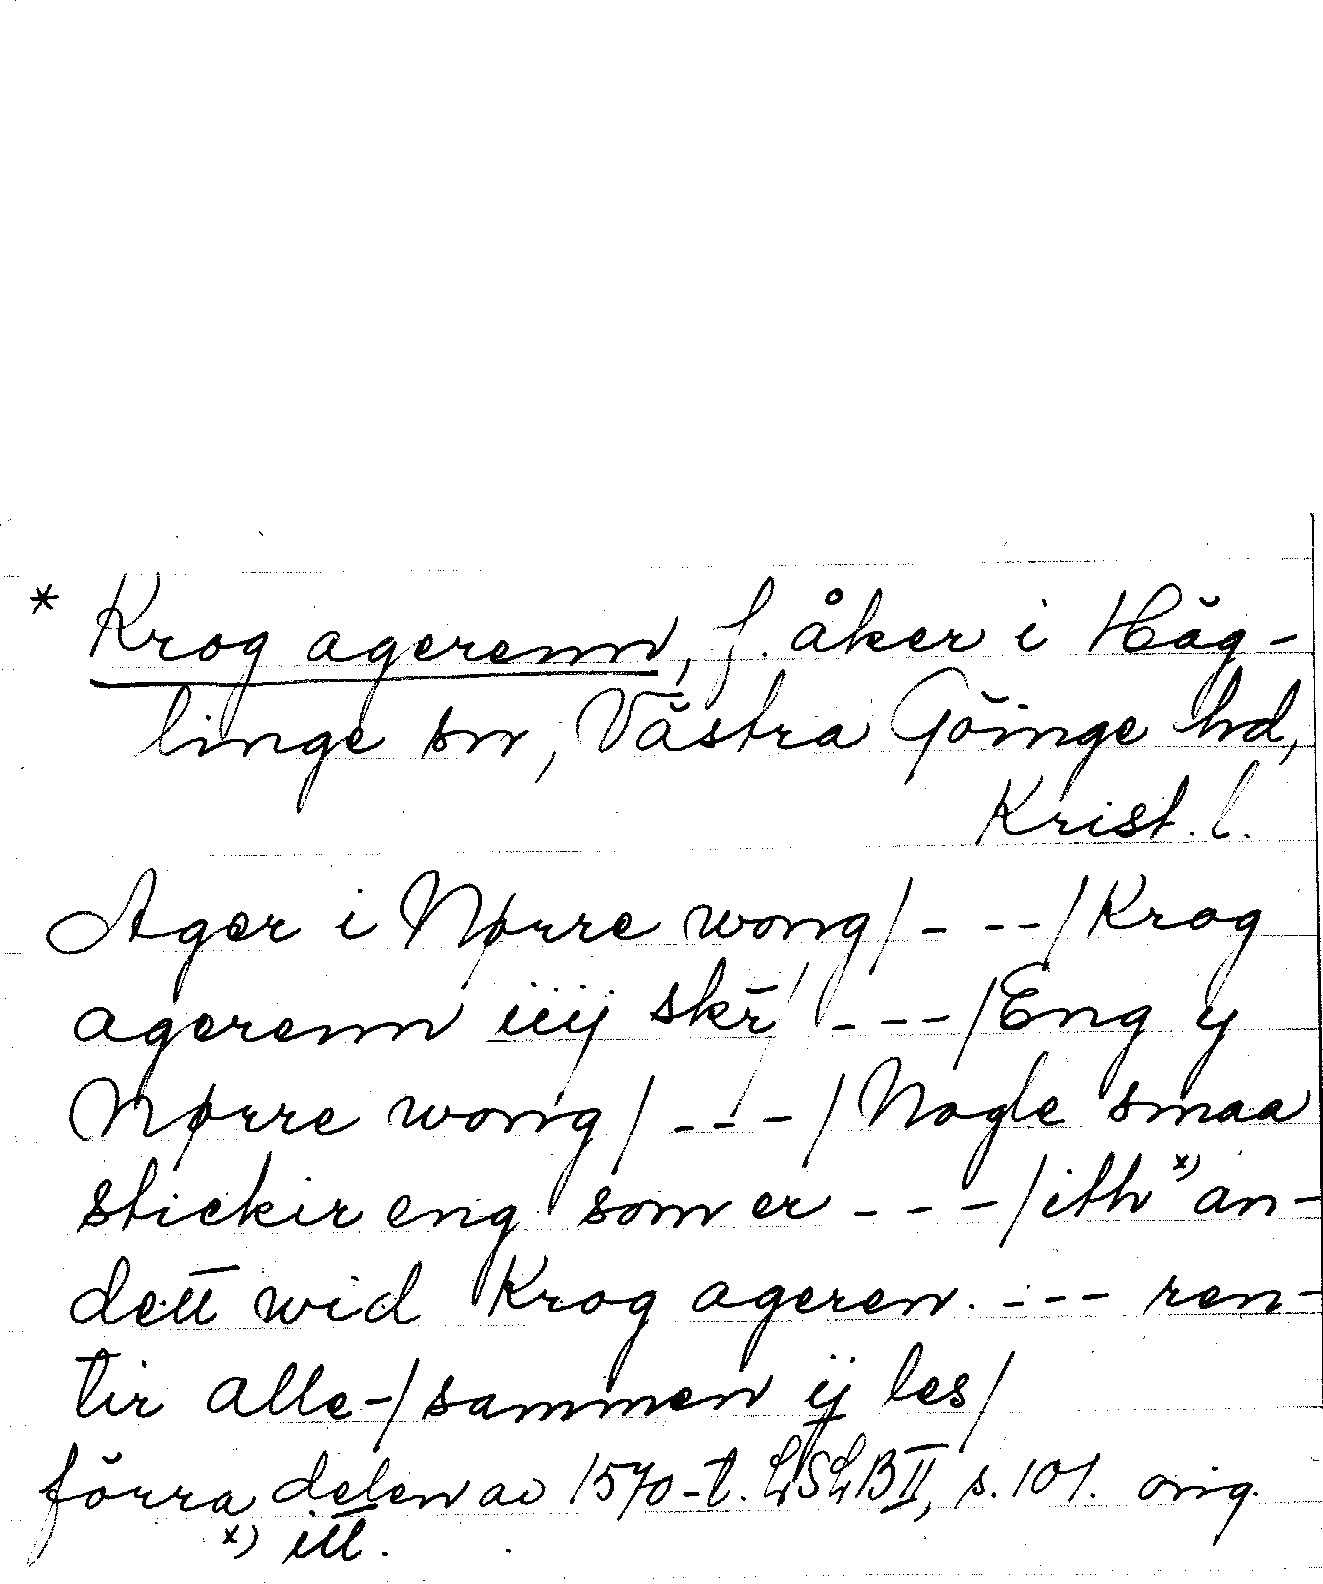 * Krog agerenn, f. åker i Häg-
linge sn, Västra Göinge hd,
Krist. l.
Ager i Nørre wong/ - - - /Krog
agerenn iiij skr̄/ - - - /Eng y
Nørre wong/ - - - /Nogle smaa
stickir eng som er - - - /ith x) an-
dett wid Krog ageren. - - - ren-
tir alle-/sammen ij les/
förra delen av 1570-t. II, s. 101. orig.
x) itt.